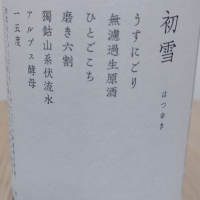 初雪
はつゆき
うすにごり
無濾過生原酒
ひとごこち
磨き六割
獨鈷山系伏流水
アルプス酵母
一五度